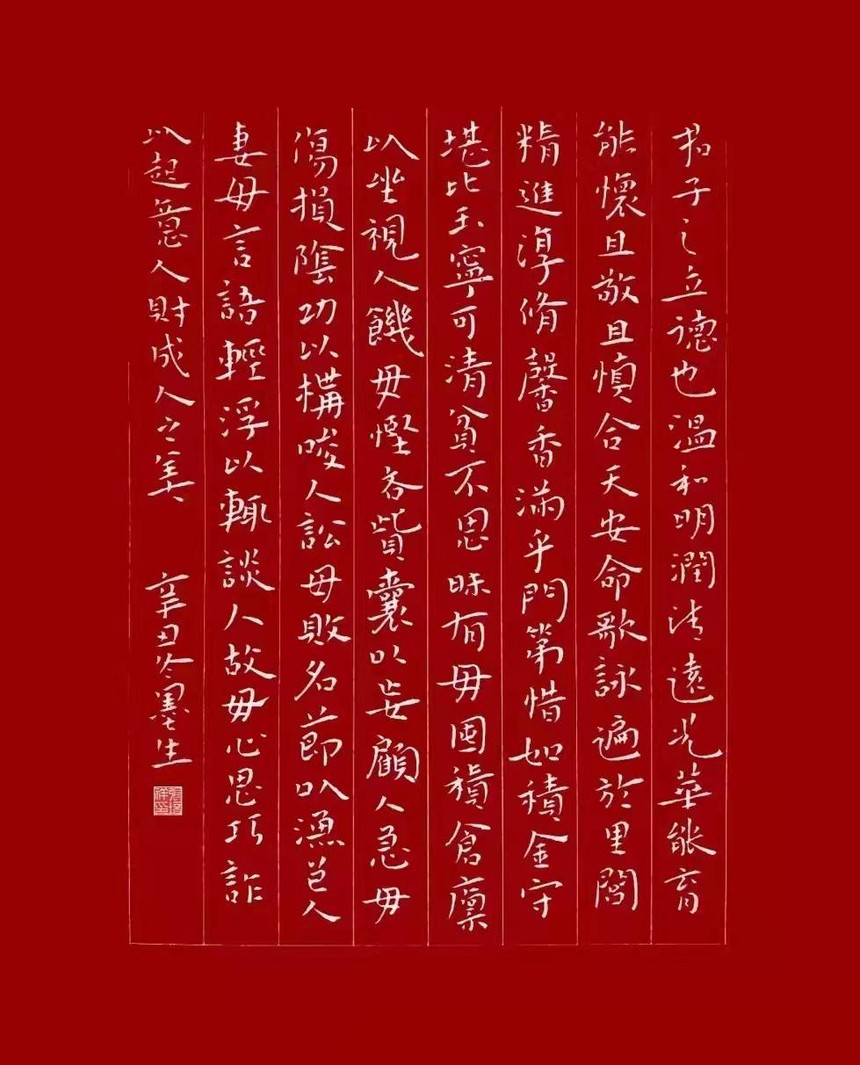 君子之立德也溫和明潤清遠光華能育
能懷且敬且慎合天安命歌詠遍於里閻
精進淳脩馨香滿乎門第惜如積金守
堪比玉寧可清貧不思昧有毋囤積倉廪
以坐視人饑毋慳吝貲囊以妄顧人急毋
傷損陰功以構唆人訟毋敗名節以漁色人
妻毋言語輕浮以輒談人故毋心思巧詐
以起意人財成人之美
辛丑冬墨生